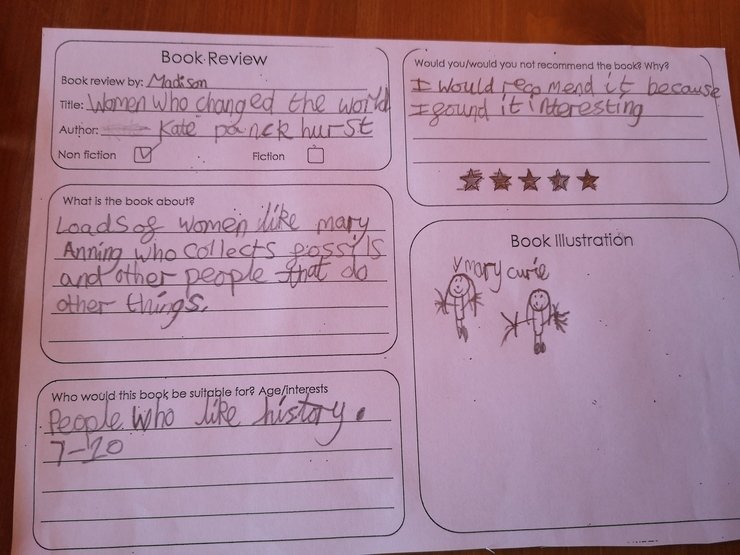 Book Review
Book review by: Madison
Title: Women who changed the world
Author: Kate panckhurst
Non fiction
Fiction
What is the book about?
Loads of women like mary
Anning who collects fossils
and other people that do
other things.
Who would this book be suitable for? Age/interests
People who like history.
7-20
Would you/would you not recommend the book? Why?
I would recomend it because
I found it interesting
Book Illustration
mary curie